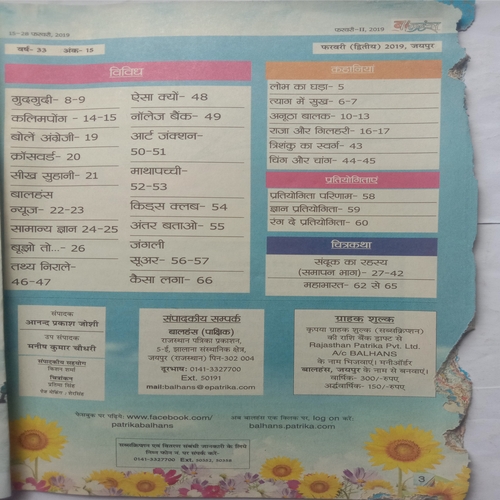 15-28 फरवरी, 2019
फरवरी-II, 2019
वर्ष- 33 अंक- 15
फरवरी (द्वितीय) 2019, जयपुर
विविध
गुदगुदी- 8-9
कलिमपोंग - 14-15
बोलें अंग्रेजी- 19
क्रॉसवर्ड- 20
सीख सुहानी- 21
बालहंस
न्यूज- 22-23
सामान्य ज्ञान 24-25
बूझो तो...- 26
तथ्य निराले-
46-47
ऐसा क्यों- 48
नॉलेज बैंक- 49
आर्ट जंक्शन-
50-51
माथापच्ची-
52-53
किड्स क्लब- 54
अंतर बताओ- 55
जंगली
सूअर- 56-57
कैसा लगा- 66
कहानियां
लोभ का घड़ा- 5
त्याग में सुख- 6-7
अनूठा बालक- 10-13
राजा और गिलहरी- 16-17
त्रिशंकु का स्वर्ग- 43
चिंग और चांग- 44-45
प्रतियोगिताएं
प्रतियोगिता परिणाम- 58
ज्ञान प्रतियोगिता- 59
रंग दे प्रतियोगिता- 60
चित्रकथा
संदूक का रहस्य
(समापन भाग)- 27-42
महाभारत- 62 से 65
संपादक
आनन्द प्रकाश जोशी
उप संपादक
मनीष कुमार चौधरी
संपादकीय सहयोग
किशन शर्मा
चित्रांकन
प्रतिमा सिंह
संपादकीय सम्पर्क
बालहंस (पाक्षिक)
राजस्थान पत्रिका प्रकाशन,
5-ई, झालाना संस्थानिक क्षेत्र,
जयपुर (राजस्थान) पिन-302 004
दूरभाष: 0141-3327700
Ext. 50191
mail:balhans@epatrika.com
ग्राहक शुल्क
कृपया ग्राहक शुल्क (सब्सक्रिप्शन)
की राशि बैंक ड्राफ्ट से
Rajasthan Patrika Pvt. Ltd.
A/c BALHANS
के नाम भिजवाएं। मनीऑर्डर
बालहंस, जयपुर के नाम से बनवाएं।
वार्षिक- 300/-रुपए
अर्द्धवार्षिक- 150/-रुपए
फेसबुक पर पढ़िये: www.facebook.com/
patrikabalhans
अब बालहंस एक क्लिक पर, log on करें:
balhans.patrika.com
सब्सक्रिप्शन एवं वितरण संबंधी जानकारी के लिये
निम्न फोन नं पर संपर्क करें-
0141-3327700 Ext.
3